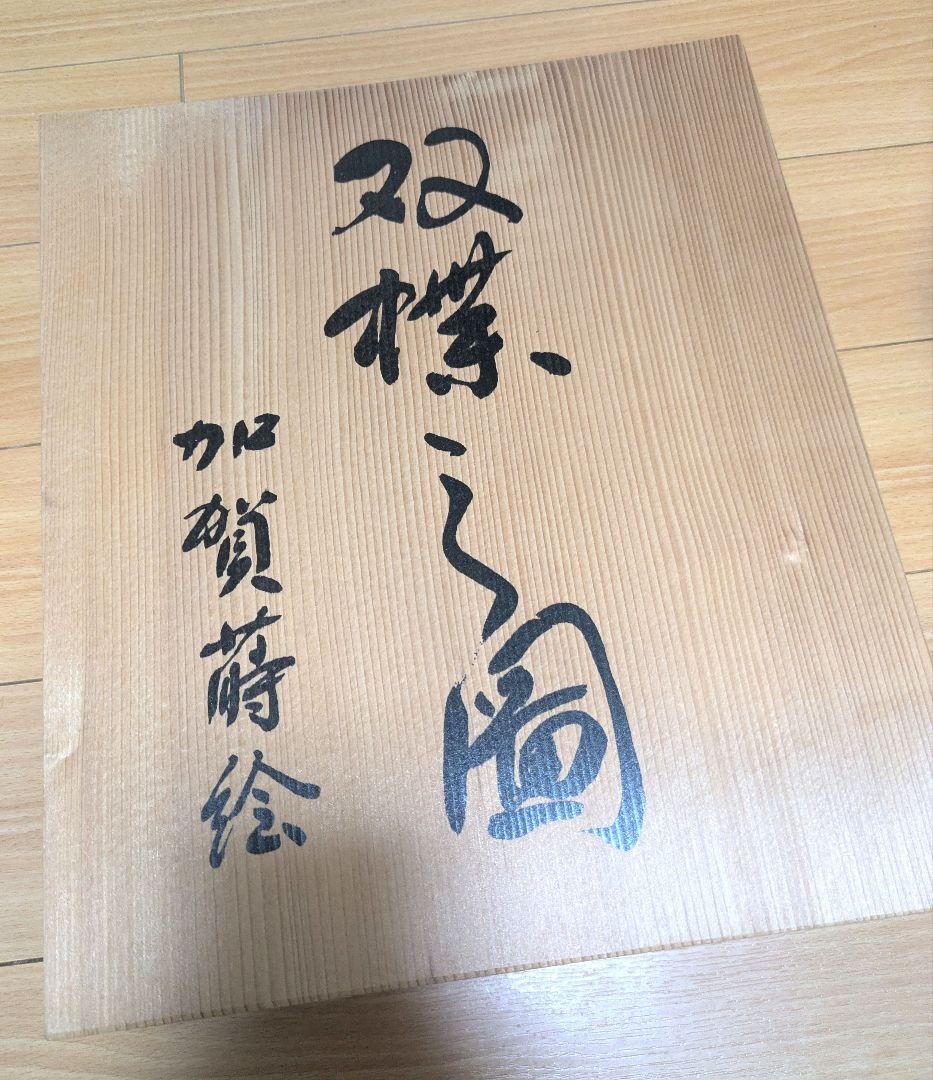 双蝶之圖
加賀蒔絵